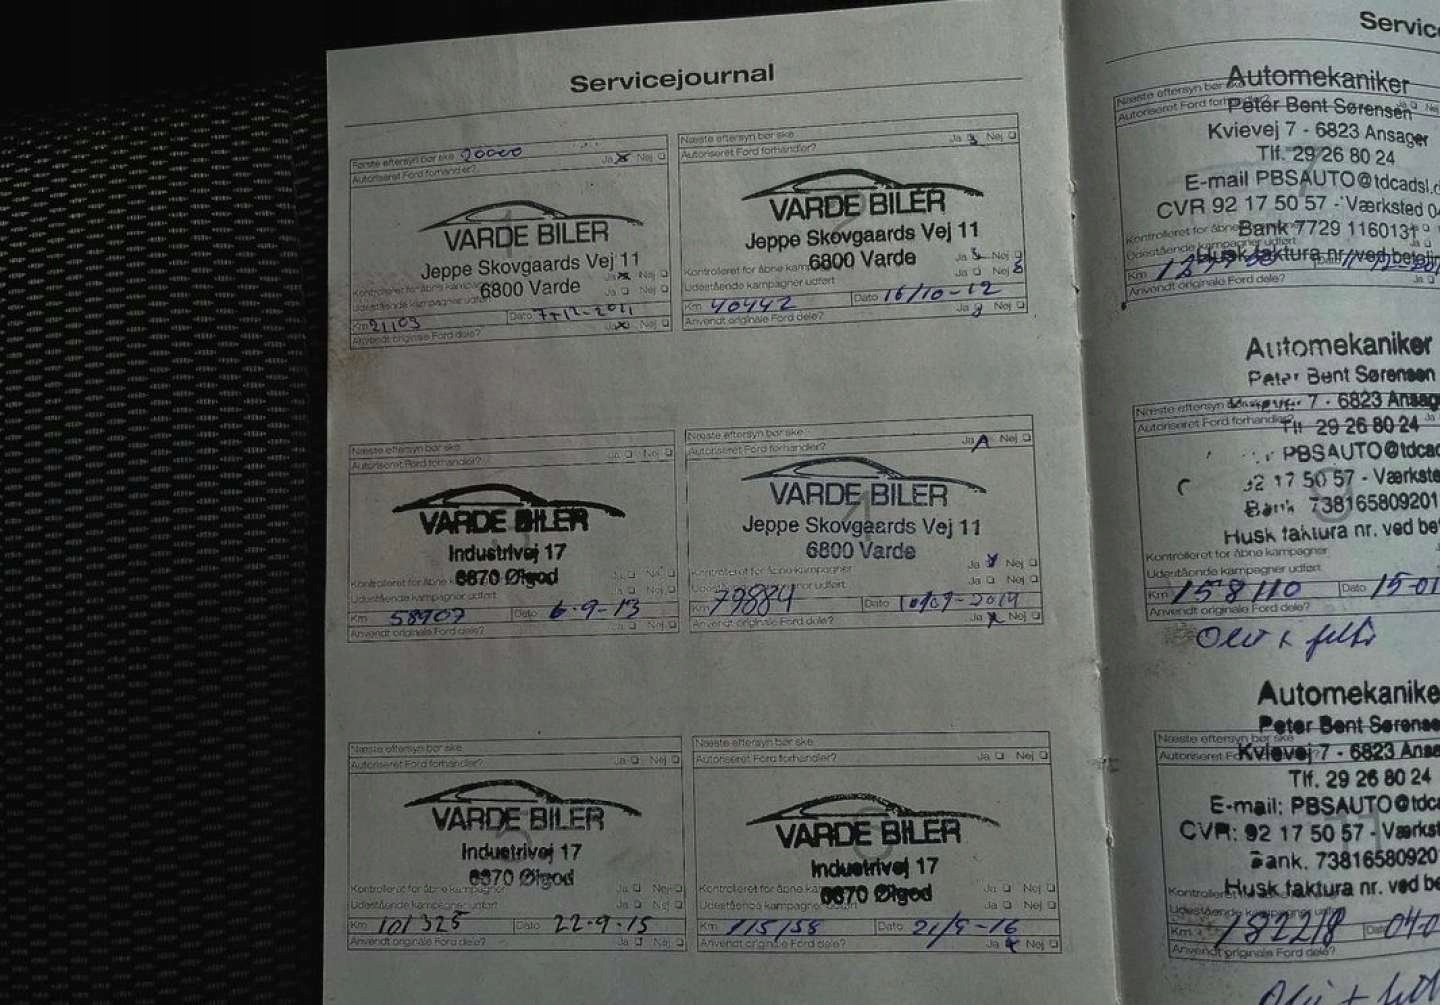 Servicejournal
Første eftersyn bør ske 20000
Autoriseret Ford forhandler? Ja Nej
VARDE BILER
Jeppe Skovgaards Vej 11
6800 Varde
Kontrolleret for åbne
Udestående kampagner udført Ja Nej
Km 21103 Dato 7-12-2011
Anvendt originale Ford dele? Ja Nej
Næste eftersyn bør ske
Autoriseret Ford forhandler? Ja Nej
VARDE BILER
Jeppe Skovgaards Vej 11
6800 Varde
Kontrolleret for åbne Ja Nej
Udestående kampagner udført Ja Nej
Km 40442 Dato 16/10-12
Anvendt originale Ford dele? Ja Nej
Næste eftersyn bør ske
Autoriseret Ford forhandler? Ja Nej
VARDE BILER
Industrivej 17
6870 Ølgod
Kontrolleret for åbne
Udestående kampagner udført
Km 58907 Dato 6-9-13
Anvendt originale Ford dele? Ja Nej
Næste eftersyn bør ske
Autoriseret Ford forhandler? Ja Nej
VARDE BILER
Jeppe Skovgaards Vej 11
6800 Varde
Kontrolleret for åbne kampagner Ja Nej
Udestående kampagner udført Ja Nej
Km 79884 Dato 10/09-2014
Anvendt originale Ford dele? Ja Nej
Næste eftersyn bør ske
Autoriseret Ford forhandler? Ja Nej
VARDE BILER
Industrivej 17
6870 Ølgod
Kontrolleret for åbne kampagner Ja Nej
Udestående kampagner udført Ja Nej
Km 101325 Dato 22-9-15
Anvendt originale Ford dele? Ja Nej
Næste eftersyn bør ske
Autoriseret Ford forhandler? Ja Nej
VARDE BILER
Industrivej 17
6870 Ølgod
Kontrolleret for åbne Ja Nej
Udestående kampagner Ja Nej
Km 115158 Dato 21/9-16
Anvendt originale Ford dele? Ja Nej
Servic
Automekaniker
Næste eftersyn bør
Peter Bent Sørensen
Autoriseret Ford
Kvievej 7 - 6823 Ansager
Tlf. 29 26 80 24
E-mail PBSAUTO@tdcadsl.
CVR 92 17 50 57 - Værksted
Kontrolleret for åbne
Bank 7729 116013
Udestående kampagner udført
Husk faktura nr. ved
Km
Anvendt originale Ford dele?
Automekaniker
Peter Bent Sørensen
Næste eftersyn 7 - 6823 Ansag
Autoriseret Ford
29 26 80 24
PBSAUTO@tdca
17 50 57 - Værkste
Bank 738165809201
Husk faktura nr. ved be
Kontrolleret for åbne kampagner
Udestående kampagner udført
Km 158110 Dato 15-01
Anvendt originale Ford dele?
Automekanike
Peter Bent Sørense
Næste eftersyn bør ske
Kvievej 7 - 6823 Ansa
Autoriseret
Tlf. 29 26 80 24
E-mail: PBSAUTO@tdc
CVR: 92 17 50 57 - Værkst
Bank. 73816580920
Husk faktura nr. ved be
Udestående kampagner
Km 182218 Dato 04-0
Anvendt originale Ford dele?